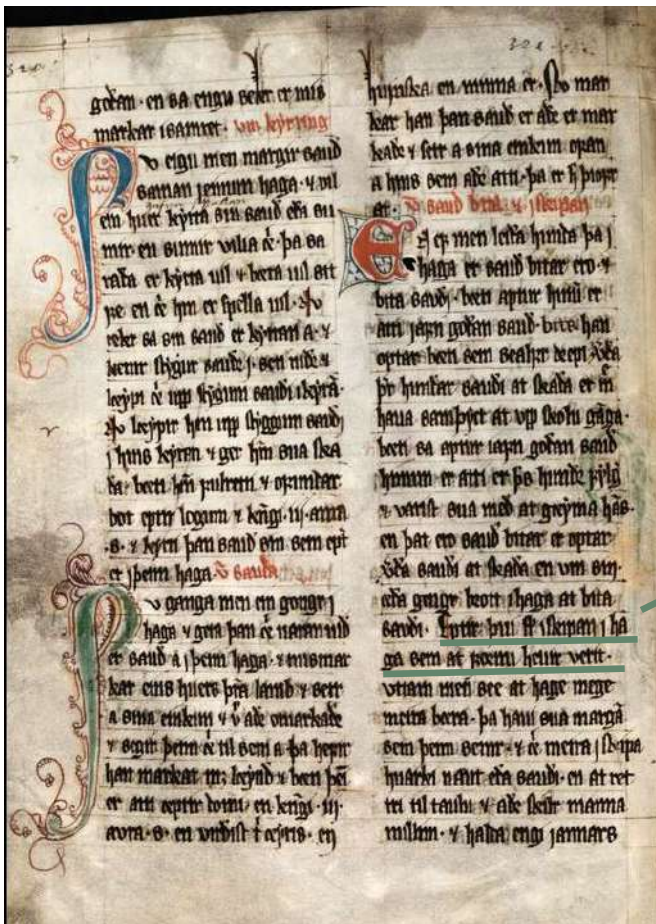 goðan · en sa engu seker er mis
markar isamret · vm køyring
Nv eigu men margir saud
saman jeinum haga · ⁊ vil
ein huer køyra sin saud eða su
mir · en sumir vilia ei · þa sa
raða er køyra uil ⁊ bæta uil sit
fe · en ei hin er spella uil · Nv
reker sa sin saud er køyran a · ⁊
kemr styggr saude j · sen nidr ⁊
løypi ei upp styggum saudi ikøyrā ·
Nv løypir han upp styggum saudi
j hins køyren ⁊ ger hm sua ska
da · beti hm fulrett ⁊
bot eptir logum ⁊ kōngi · iij · aura
· s · ⁊ køyri þan saud sin sem ept
er jþeim haga · v sauda
Nv ganga men ein gongr j
haga ⁊ gera þan ei naran vid
er saud a jþeim haga · ⁊ mismar
kar eins huers þra lamb ⁊ setr
a sina einkun ⁊ v ade omarkade
⁊ sigir þeim ei til sem a þa hefir
han markat m; løynd ⁊ beti þei
er atti eptir domi · en kōngi · iij ·
aura · s · en
huinska en minna er · Nv mar
kar han þan saud er ade er mar
kade ⁊ setr a sina einkun ofan
a hins sem ade atti · þa er h þiofr
at · v saud bita · ⁊ jskipan
En ef men leida hunda þa j
haga er saud bitar ero · ⁊
bita saudi · beti aptur hinū er
atti jafn goðan saud · bitr han
optar beti sem sealfr drepi · Vða
þr hundar saudi at skaða er m
haua samþyct at vpp skolu gāga ·
beti sa aptur iafn goðan saud
hinum er atti er þs hunde fylg
⁊ varist sua med at greyma hās ·
en þat ero saud bitar er optar
vða saudi at skaða en vm sin ·
eða gengr brott ihaga at bita
saudi · Eptir þui st iskipan j ha
ga sem at forni heuir verit ·
vtan men see at hage mege
meira bera · þa haui sua margā
sem þeim semr · ⁊ ei meira jskipa
huarki naut eða saudi · en at ret
tri til taulu ⁊ ade skilr manna
millim · ⁊ halda engi jannars